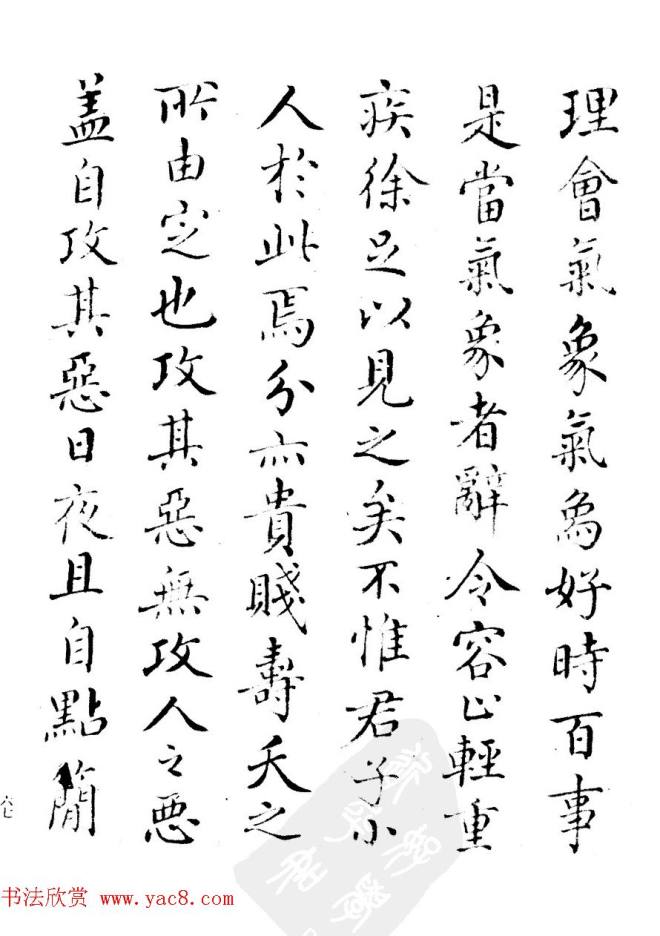 理會氣象氣象好時百事
是當氣象者辭令容止輕重
疾徐足以見之矣不惟君子小
人於此焉分亦貴賤壽夭之
所由定也攻其惡無攻人之惡
盖自攻其惡日夜且自點簡
六七
书法欣赏 www.yac8.com